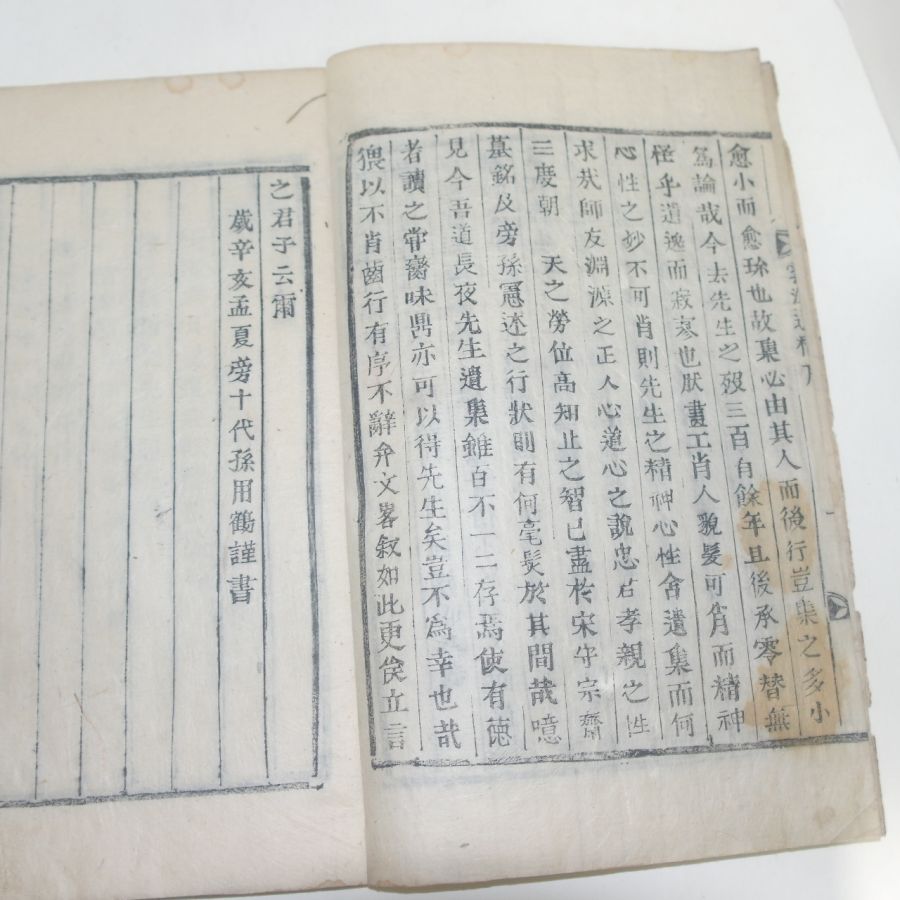 愈小而愈珍也故集必由其人而後行豈集之多小
爲論哉今去先生之歿三百有餘年且後承零替無
怪乎遺逸而寂寥也厥畫工肖人貌髮可肖而精神
心性之妙不可肖則先生之精神心性舍遺集而何
求哉師友淵源之正人心道心之說忠君孝親之性
三度朝 天之勞位高知止之智已盡於宋守宗齋
墓銘及旁孫憲述之行狀則有何毫髮於其間哉噫
見今吾道長夜先生遺集雖百不一二存焉使有德
者讀之常臠味鼎亦可以得先生矣豈不爲幸也哉
猥以不肖齒行有序不辭弁文畧叙如此更俟立言
之君子云爾
歲辛亥孟夏旁十代孫用鶴謹書